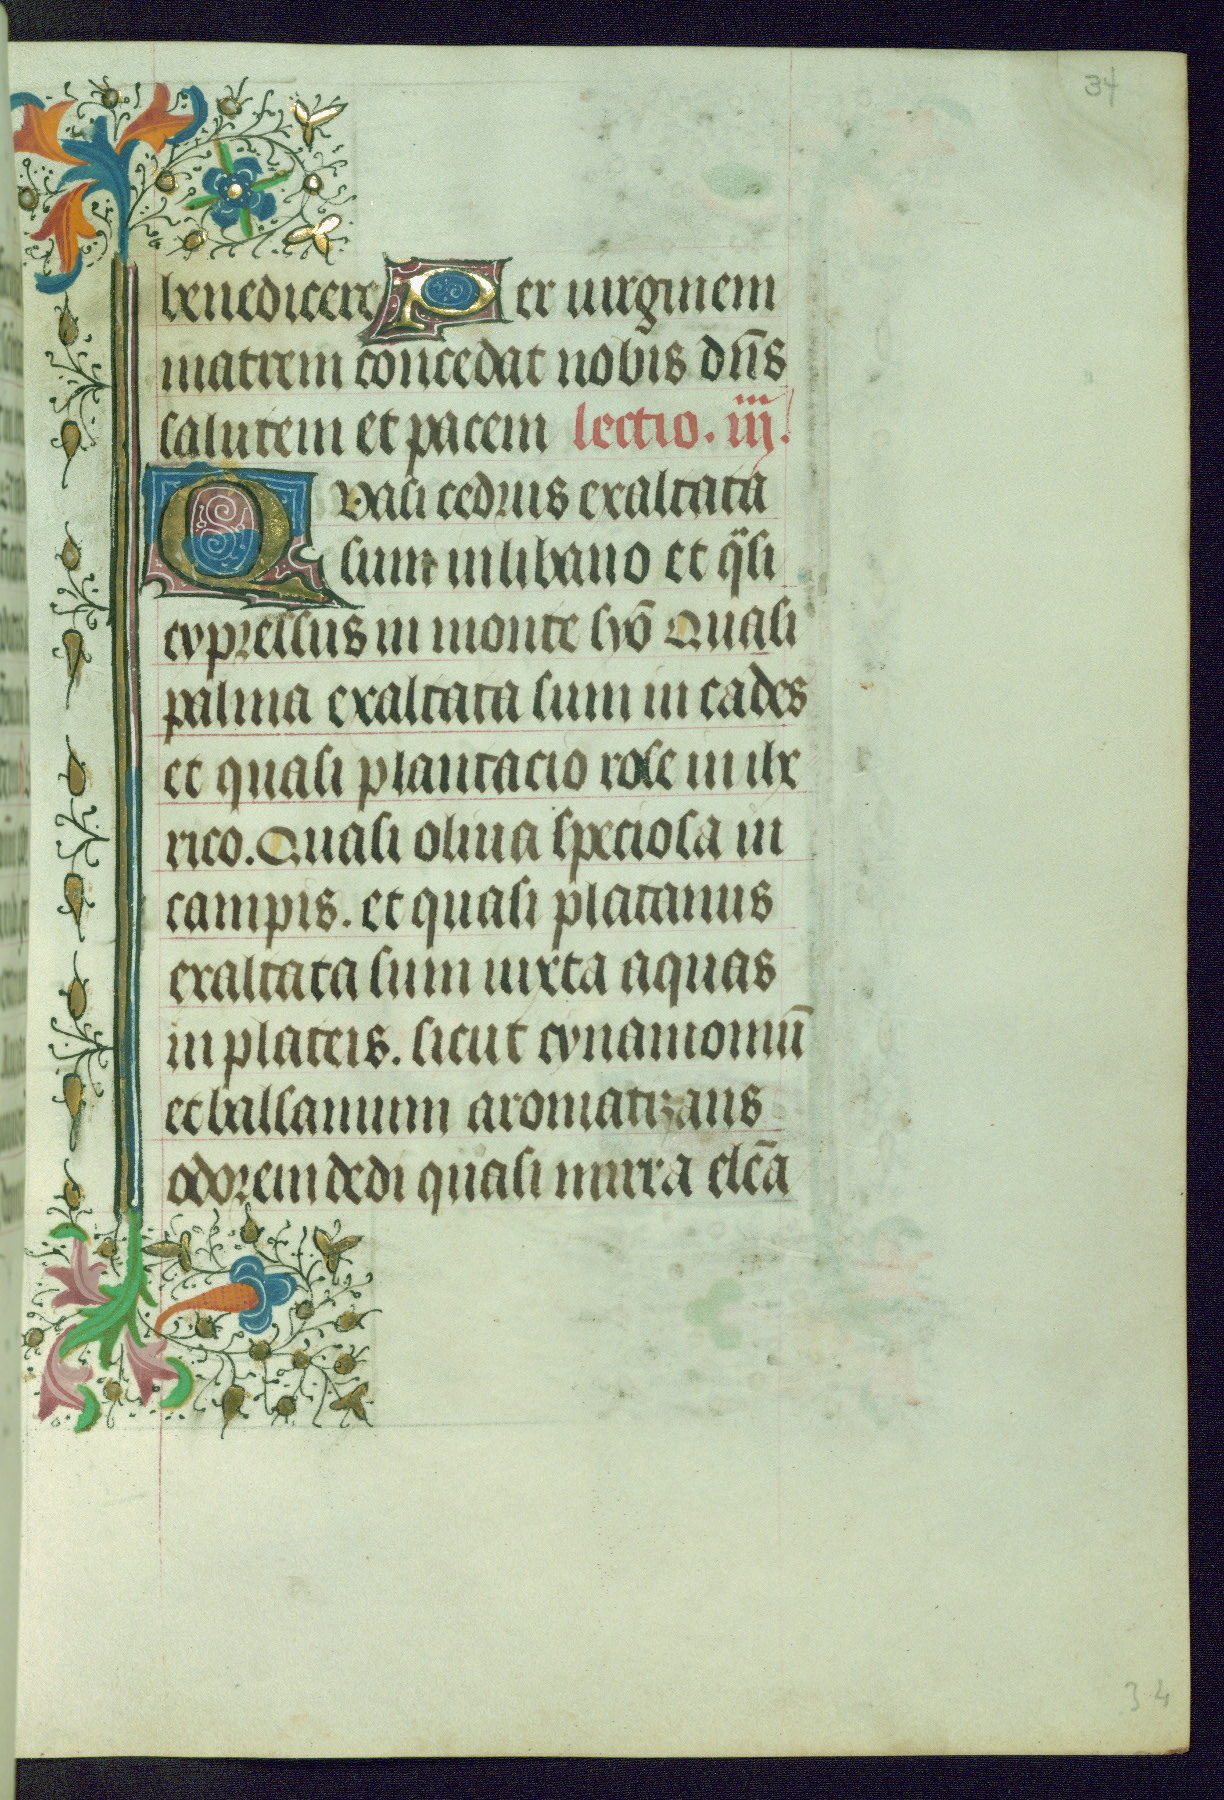 34
benedicere Per uirginem
matrem concedat nobis dn̄s
salutem et pacem lectio. iij.
Quasi cedrus exaltata
sum in libano et qᵃsi
cypressus in monte syō Quasi
palma exaltata sum in cades
et quasi plantacio rose in ihe
rico. Quasi oliua speciosa in
campis. et quasi platanus
exaltata sum iuxta aquas
in plateis. sicut cynamomū
et balsamum aromatizans
odorem dedi quasi mirra elc̄a
34